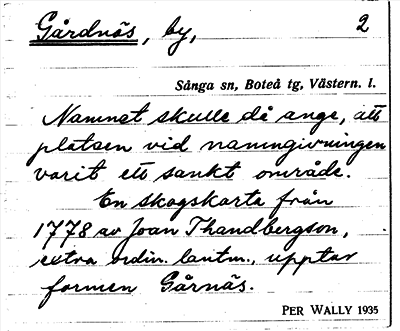 Gårdnäs, by, 2
Sånga sn, Boteå tg, Västern. l.
Namnet skulle då ange, att
platsen vid namngivningen
varit ett sankt område.
En skogskarta från
1778 av Joan Thandbergson,
extra ordin. lantm., upptar
formen Gårnäs.
PER WALLY 1935